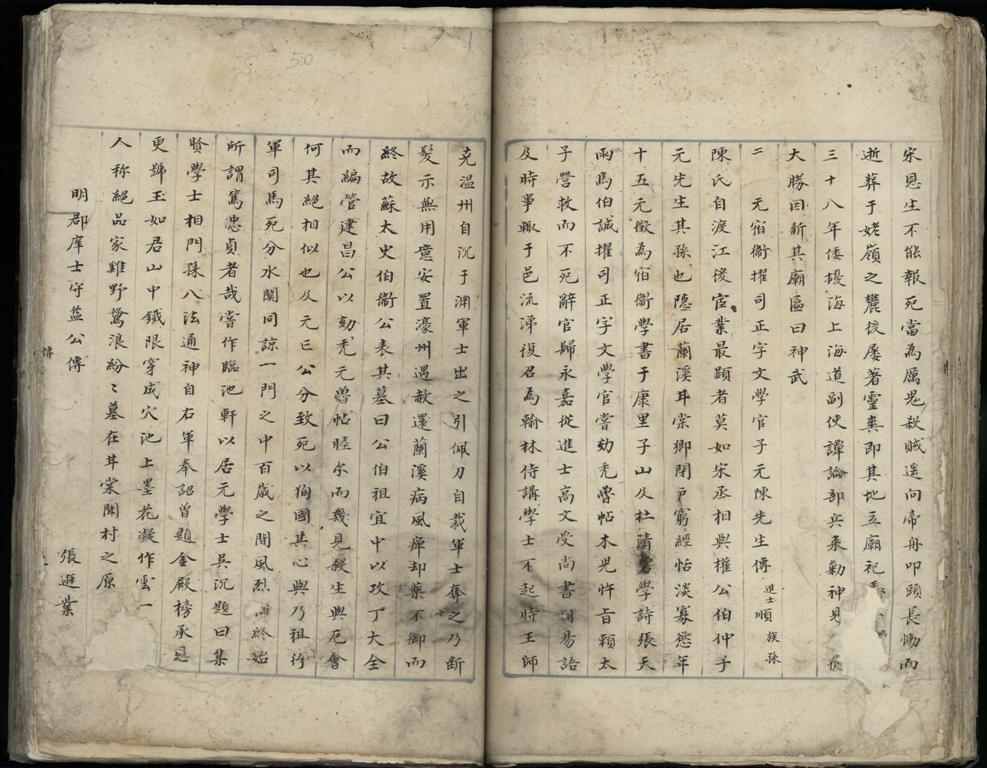 宋恩生不能報死當為厲鬼殺賊遥向帝舟叩頭長慟而
逝葬于姥嶺之麓後屡著靈爽即其地立廟祀
三十八年倭擾海上海道副使譚諭部兵来勦神見
大勝回新其廟匾曰神武
二 元宿衞擢司正字文學官子元陳先生傳 進士順 族孫
陳氏自渡江後官業最顕者莫如宋丞相與權公伯仲子
元先生其孫也隠居蘭溪耳棠卿閉戸窮經恬淡寡慾年
十五元徵為宿衞學書于康里子山及杜清學詩張天
雨馬伯誠擢司正字文學官嘗劾秃魯帖木児忤旨頼太
子營救而不死辭官歸永嘉從進士高文受尚書周易語
及時事輒于邑流涕復召為翰林侍講學士不起時王師
克温州自沉于渊軍士出之引佩刀自裁軍士奪之乃断
髪示無用意安置濠州遇赦還蘭溪病風痺却藥不御而
終故蘇太史伯衡公表其墓曰公伯祖宜中以攻丁大全
而編管建昌公以劾秃元魯帖睦尔而幾見殺生與厄會
何其絕相似也及元亡公分致死以狥國其心與乃祖行
軍司馬死分水関同諒一門之中百歳之間風烈回終始
所謂篤忠貞者哉嘗作臨池軒以居元學士吳沉題曰集
賢學士相門孫八法通神自右軍奉詔曾題金殿榜承恩
更號玉如君山中鐵限穿成穴池上墨花凝作雲一
人称絕品家雞野鶩浪紛〻墓在耳棠開村之原
明郡庠士守益公傳 張遜業
傳
50